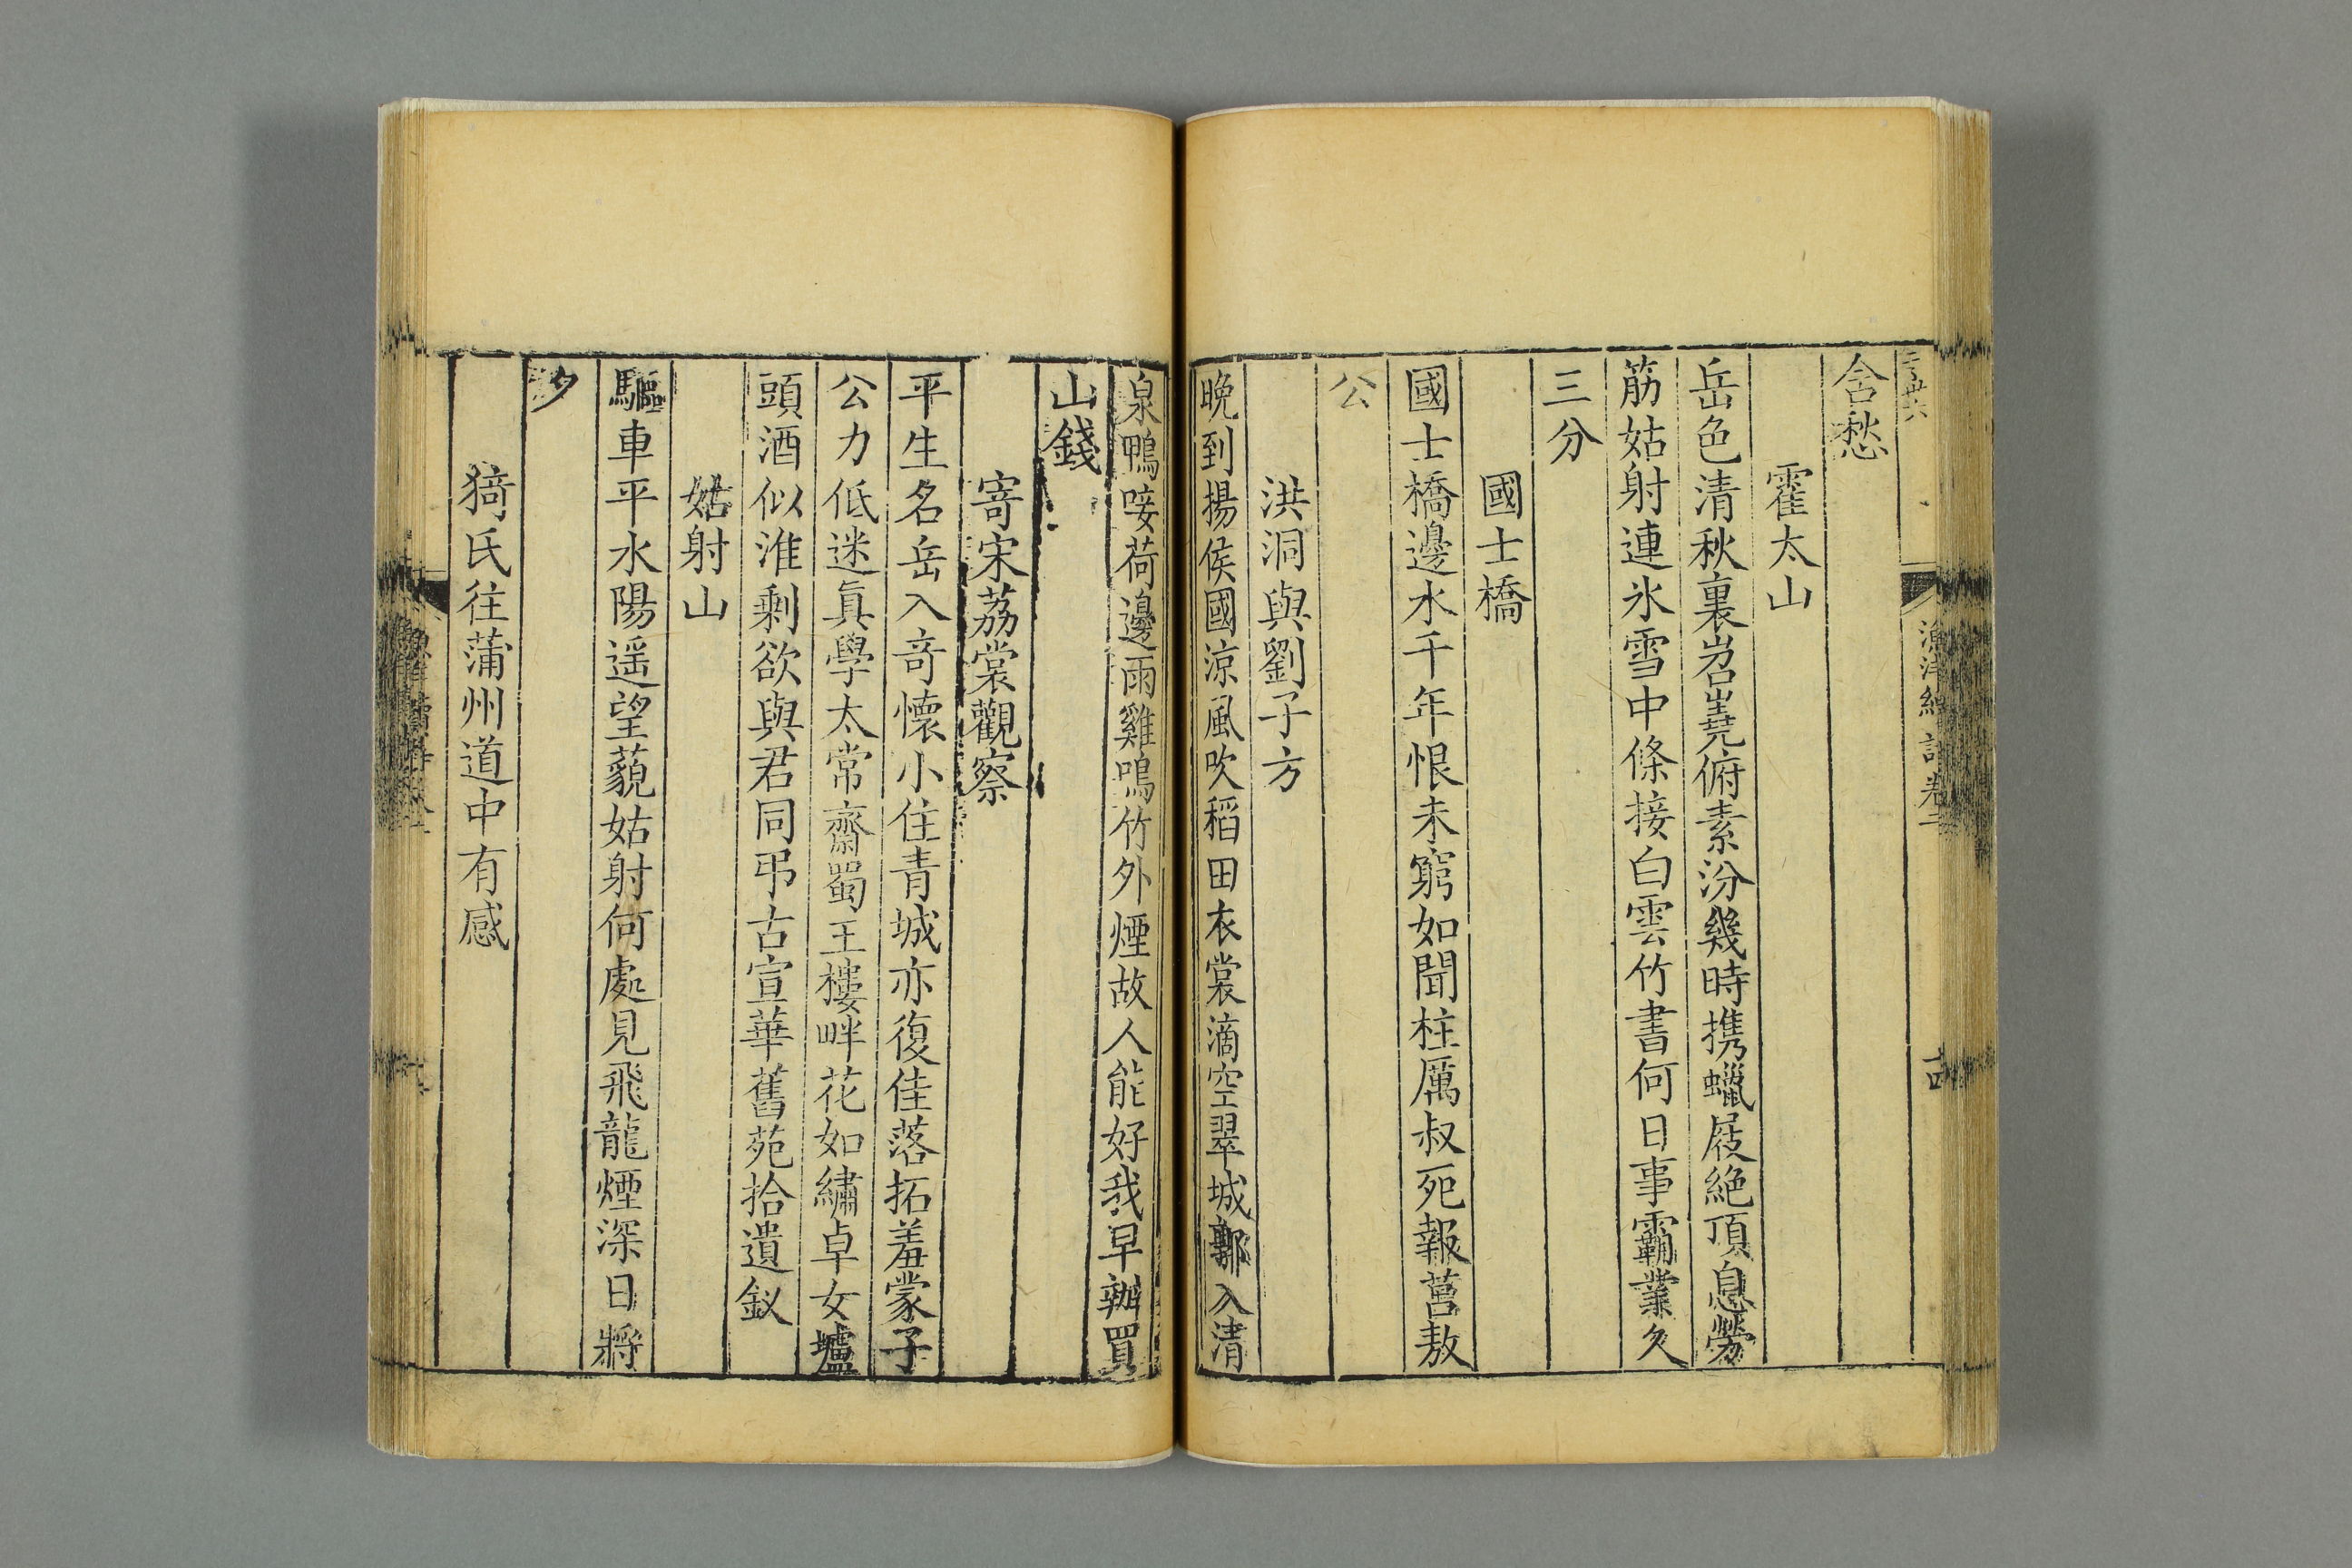 含愁
霍太山
岳色清秋裏岧嶤俯素汾幾時携蠟屐絶頂息勞
筋姑射連氷雪中條接白雲竹書何日事霸業久
三分
國士橋
國士橋邊水千年恨未窮如聞柱厲叔死報莒敖
公
洪洞與劉子方
晚到揚侯國涼風吹稻田衣裳滴空翠城郭入清
泉鴨唼荷邊雨雞鳴竹外煙故人能好我早辦買
山錢
寄宋荔裳觀察
平生名岳入奇懷小住青城亦復佳落拓羞蒙子
公力低迷眞學太常齋蜀王樓畔花如繡卓女壚
頭酒似淮剩欲與君同弔古宣華舊苑拾遺釵
姑射山
驅車平水陽遥望藐姑射何處見飛龍煙深日將
夕
猗氏往蒲州道中有感